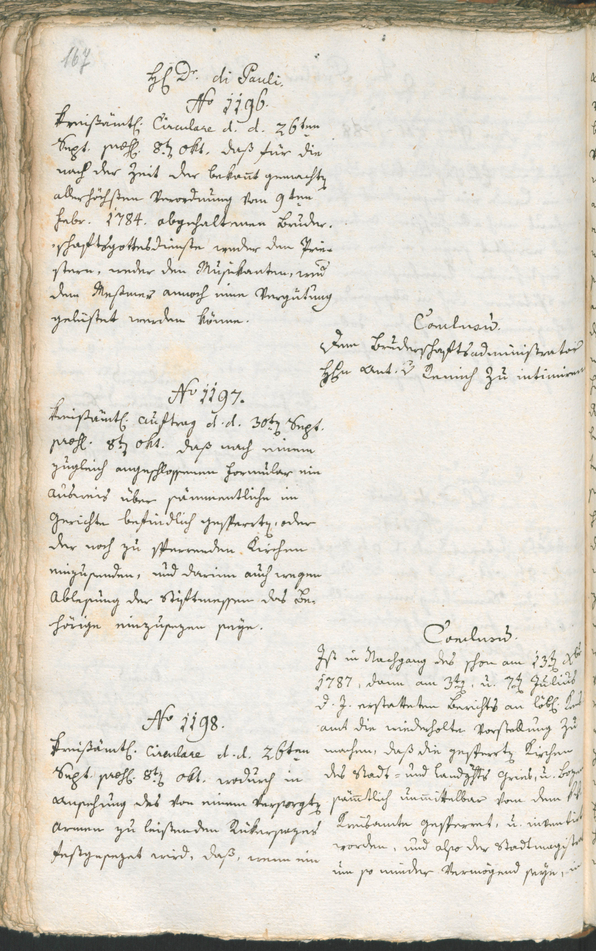 167
H. Dr. di Pauli.
No 1196.
Kreißämtl. Circulare d. d. 26ten
Sept. praes. 8t Okt. daß für die
nach der Zeit der bekannt gemachten
allerhöchsten Verordnung von 9ten
Febr. 1784. abgehaltenen Bruder-
-schaftsgottesdienste weder den Prie-
stern, weder den Musikanten, und
dem Meßmer annoch eine Vergütung
geleistet werden könne.
Conclusum.
Dem Bruderschaftsadministrator
Hhn Ant. v. Remich zu intimiren
No 1197.
Kreißämtl. Auftrag d. d. 30ten Sept.
praes. 8t Okt. daß nach einem
zugleich angeschlossenen Formular ein
Ausweis über sämmentliche im
Gerichte befindlich gesperrte, oder
der noch zu sperrenden Kirchen
einzusenden, und darinn auch wegen
Ablesung der Stiftmessen das Be-
hörige einzusezen seye.
Conclusum.
Ist in Nachgang des schon am 13ten
1787, dann am 3ten, u. 7ten Julius
d. J. erstatteten Berichts an löbl.
amt die wiederholte Vorstellung zu
machen, daß die gesperrte Kirchen
des Stadt- und Landgchts Gries, u.
sämmtlich unmittelbar von dem
Kreisamte gesperret, u.
worden, und also der
um so minder vermögend seye,
No 1198.
Kreißämtl. Circulare d. d. 26ten
Sept. praes. 8t Okt. wodurch in
Ansehung des von einem versorgten
Armen zu leistenden Rükersazes
festgesezet wird, daß, wenn ein